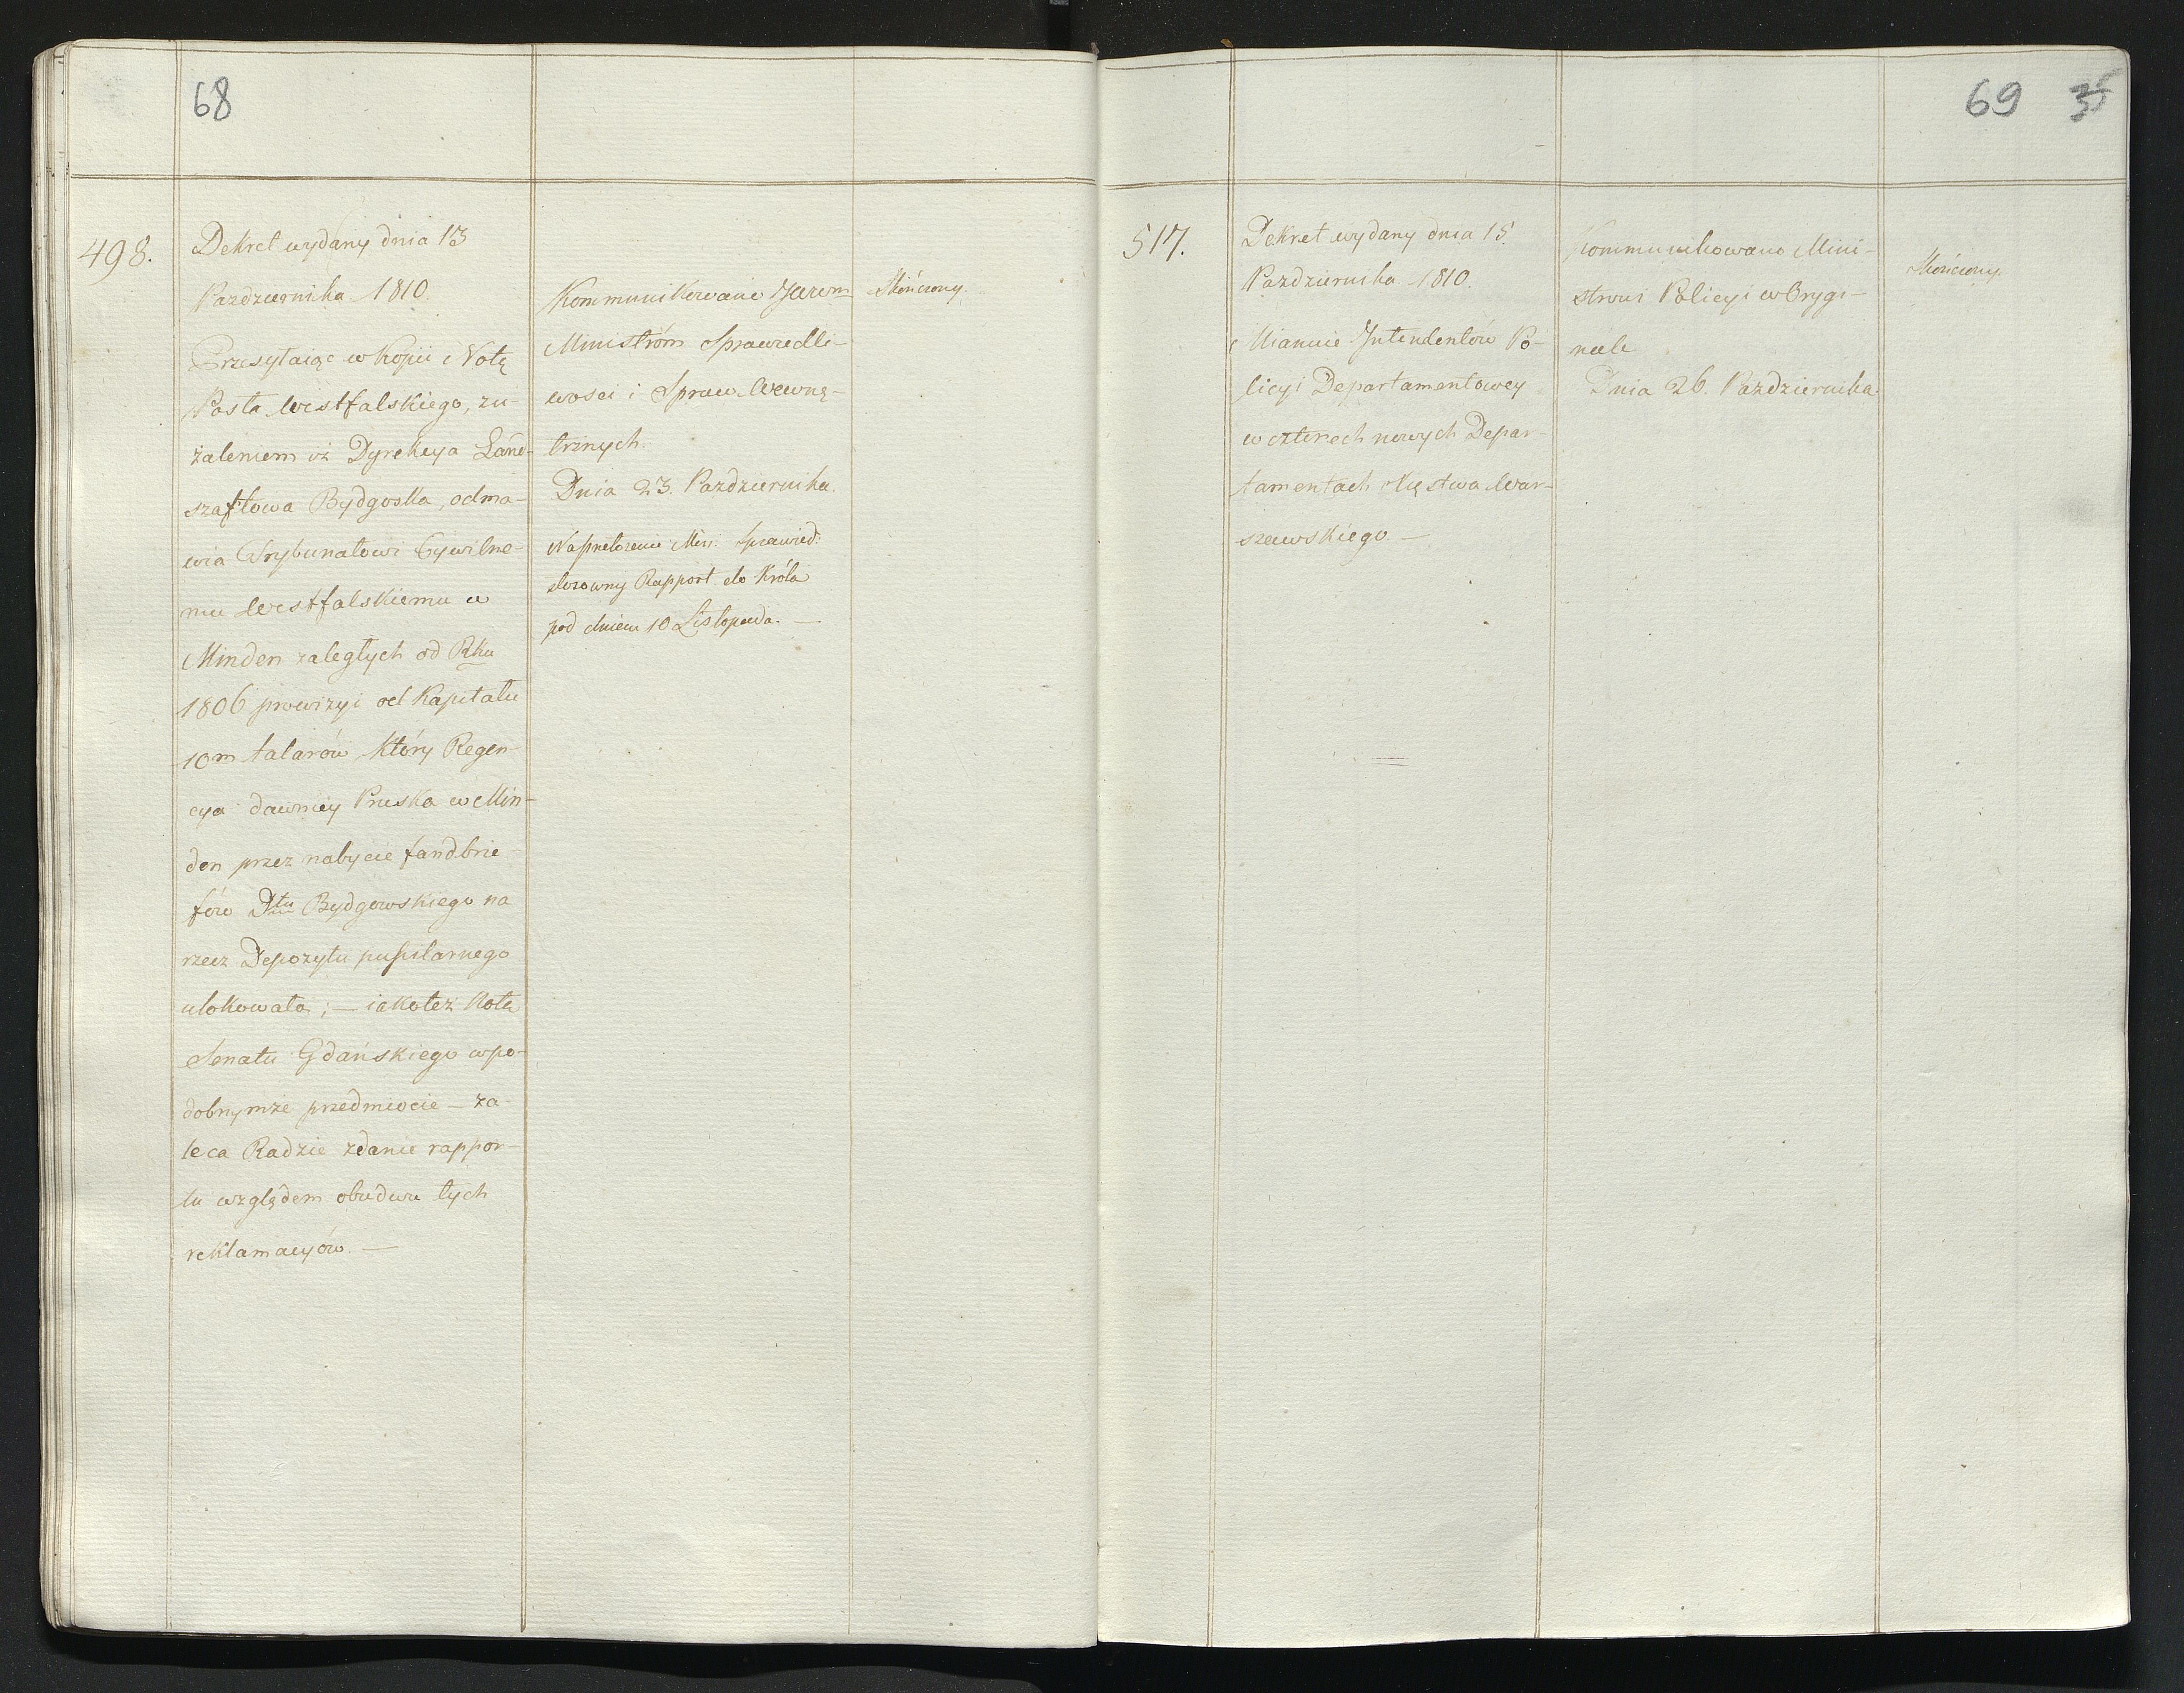 68
498.
Dekret wydany dnia 13
Pazdziernika 1810.
Przesyłaiąc w kopii i Notę
Posła Westfalskiego, zu-
żaleniem iż Dyrekcya Land-
szaftowa Bydgoska, odma-
wia Trybunałowi Cywilne-
mu Westfalskiemu w
Minden zaległych od Rku
1806 prowizyi od Kapitału
10m talarów który Regen-
cya dawniey Pruska w Min-
den przez nabycie fandbrie-
fów Dttu Bydgowskiego na
rzecz Depozytu pupilarnego
ulokowała; — iakoteż Notę
Senatu Gdańskiego w po-
dobnymże przedmiocie — za-
leca Radzie zdanie rappor-
tu względem obudwu tych
reklamacyów. —
Kommunikowane
Ministróm Sprawiedli-
wości i Spraw Wewnę-
trznych.
Dnia 23. Pazdziernika.
Na przełożenie Min: Sprawied:
stosowny Rapport do Króla
pod dniem 10 Listopada. —
Skończony.
69 35
517.
Dekret wydany dnia 15.
Pazdziernika 1810.
Mianuie Intendentów Po-
licyi Departamentowey
w czterech nowych Depar-
tamentach Xięstwa War-
szawskiego. —
Kommunikowano Mini-
strowi Policyi w Orygi-
nale
Dnia 26. Pazdziernika.
Skończony.